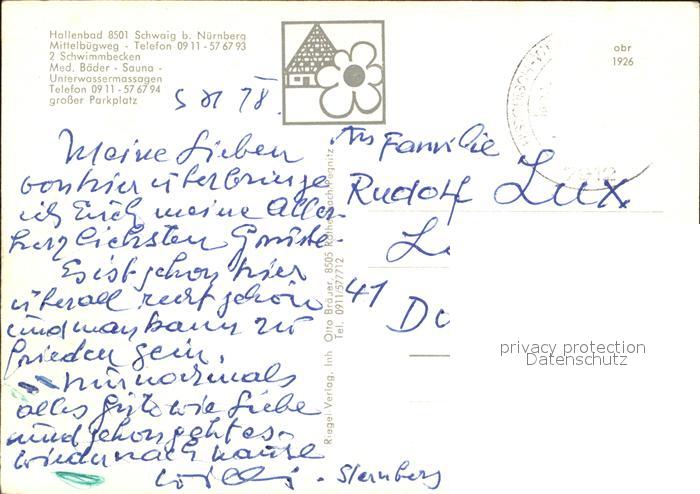 Hallenbad 8501 Schwaig b. Nürnberg
Mittelbügweg - Telefon 09 11 - 57 67 93
2 Schwimmbecken
Med. Bäder - Sauna -
Unterwassermassagen
Telefon 09 11 - 57 67 94
großer Parkplatz
obr
1926
78.
Meine Lieben
von hier überbringe
ich Euch meine Aller-
herzlichsten Grüße.
Es ist schon hier
überall recht schön
und man kann zu
frieden sein.
nun nochmals
alles Gute wie Liebe
und schon geht es
wieder nach Hause
Willi - Sternberg
An Familie
Rudolf Lux
L
41 Du
Riegel-Verlag, Inh. Otto Bräuer, 8505 Röthenbach/Pegnitz
Tel. 0911/577712
privacy protection
Datenschutz